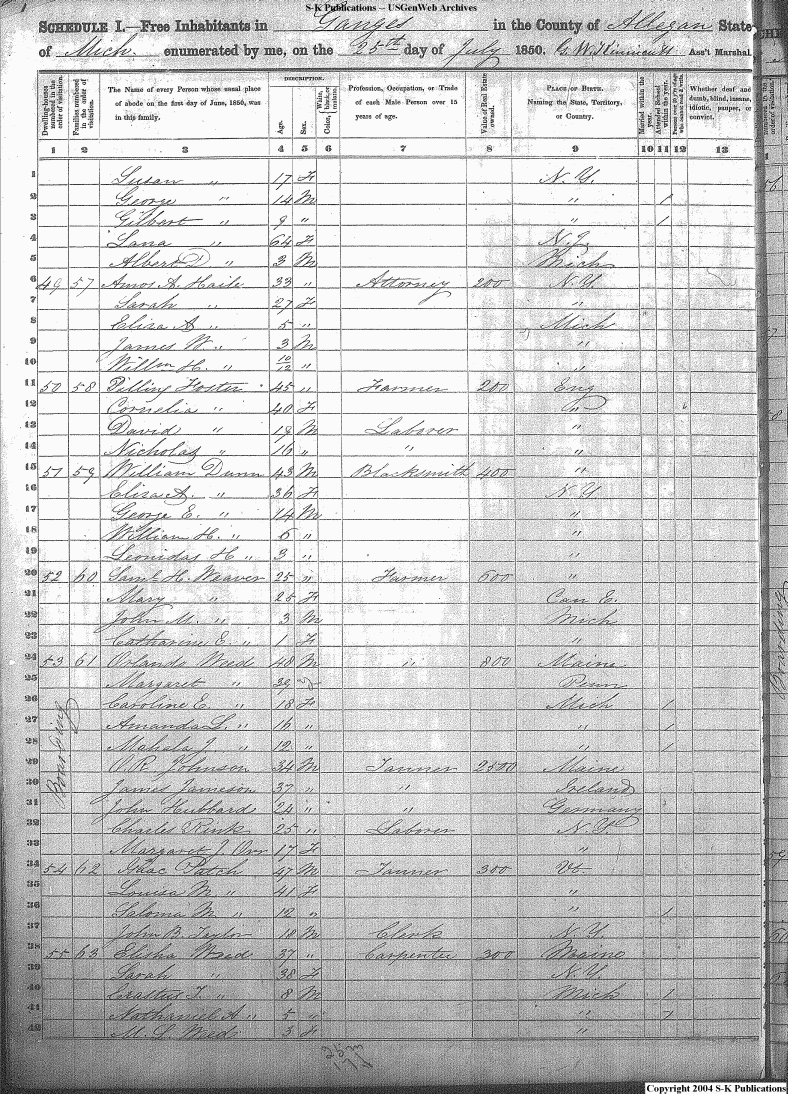 S-K Publications – USGenWeb Archives
SCHEDULE I.—Free Inhabitants in Ganges in the County of Allegan State
of Mich. enumerated by me, on the 25th day of July 1850. Ass't Marshal
Dwelling-houses numbered in the order of visitation.
Families numbered in the order of visitation.
The Name of every Person whose usual place of abode on the first day of June, 1850, was in this family.
DESCRIPTION.
Age.
Sex.
Color, White, black, or mulatto.
Profession, Occupation, or Trade of each Male Person over 15 years of age.
Value of Real Estate owned.
PLACE OF BIRTH. Naming the State, Territory, or Country.
Married within the year.
Attended School within the year.
Whether deaf and dumb, blind, insane, idiotic, pauper, or convict.
1 2 3 4 5 6 7 8 9 10 11 12 13
1 Susan " 17 F N.Y.
2 George " 14 M " 1
3 Gilbert " 9 " " 1
4 Lana " 64 F N.J.
5 Albert D " 3 M Mich
6 49 57 Amos A. Haile 33 " Attorney 200 N.Y.
7 Sarah " 27 F "
8 Eliza A " 5 " Mich
9 James W. " 3 M "
10 Willm H. " 10/12 " "
11 50 58 Pilling Foster 45 " Farmer 200 Eng
12 Cornelia " 40 F "
13 David " 19 M Laborer "
14 Nicholas " 16 " " "
15 51 59 William Dunn 43 M Blacksmith 400 "
16 Eliza A. " 36 F N.Y.
17 George E. " 14 M "
18 William H. " 6 " "
19 Leonidas H " 3 " "
20 52 60 Saml H. Weaver 25 " Farmer 600 "
21 Mary " 25 F Can E.
22 John M. " 3 M Mich
23 Catharine E. " 1 F "
24 53 61 Orlando Weed 48 M " 800 Maine
25 Margaret " 39 Penn
26 Caroline E. " 18 F Mich 1
27 Amanda L. " 16 " " 1
28 Mahala J " 12 " " 1
Boarding
29 O.R. Johnson 34 M Tanner 2500 Maine
30 James Jameson 37 " " Ireland
31 John Hubbard 24 " " Germany
32 Charles Rink 25 " Laborer N.Y.
33 Margaret J Orr 17 F "
34 54 62 Isaac Patch 47 M Tanner 300 Vt.
35 Louisa M " 41 F "
36 Saloma M " 12 " " 1
37 John B. Taylor 18 M Clerk N.Y.
38 55 63 Elisha Weed 37 " Carpenter 300 Maine
39 Sarah " 38 F N.Y.
40 Erastus T. " 8 M Mich 1
41 Nathaniel A " 5 " " 1
42 M. L. Weed 3 F "
Copyright 2004 S-K Publications